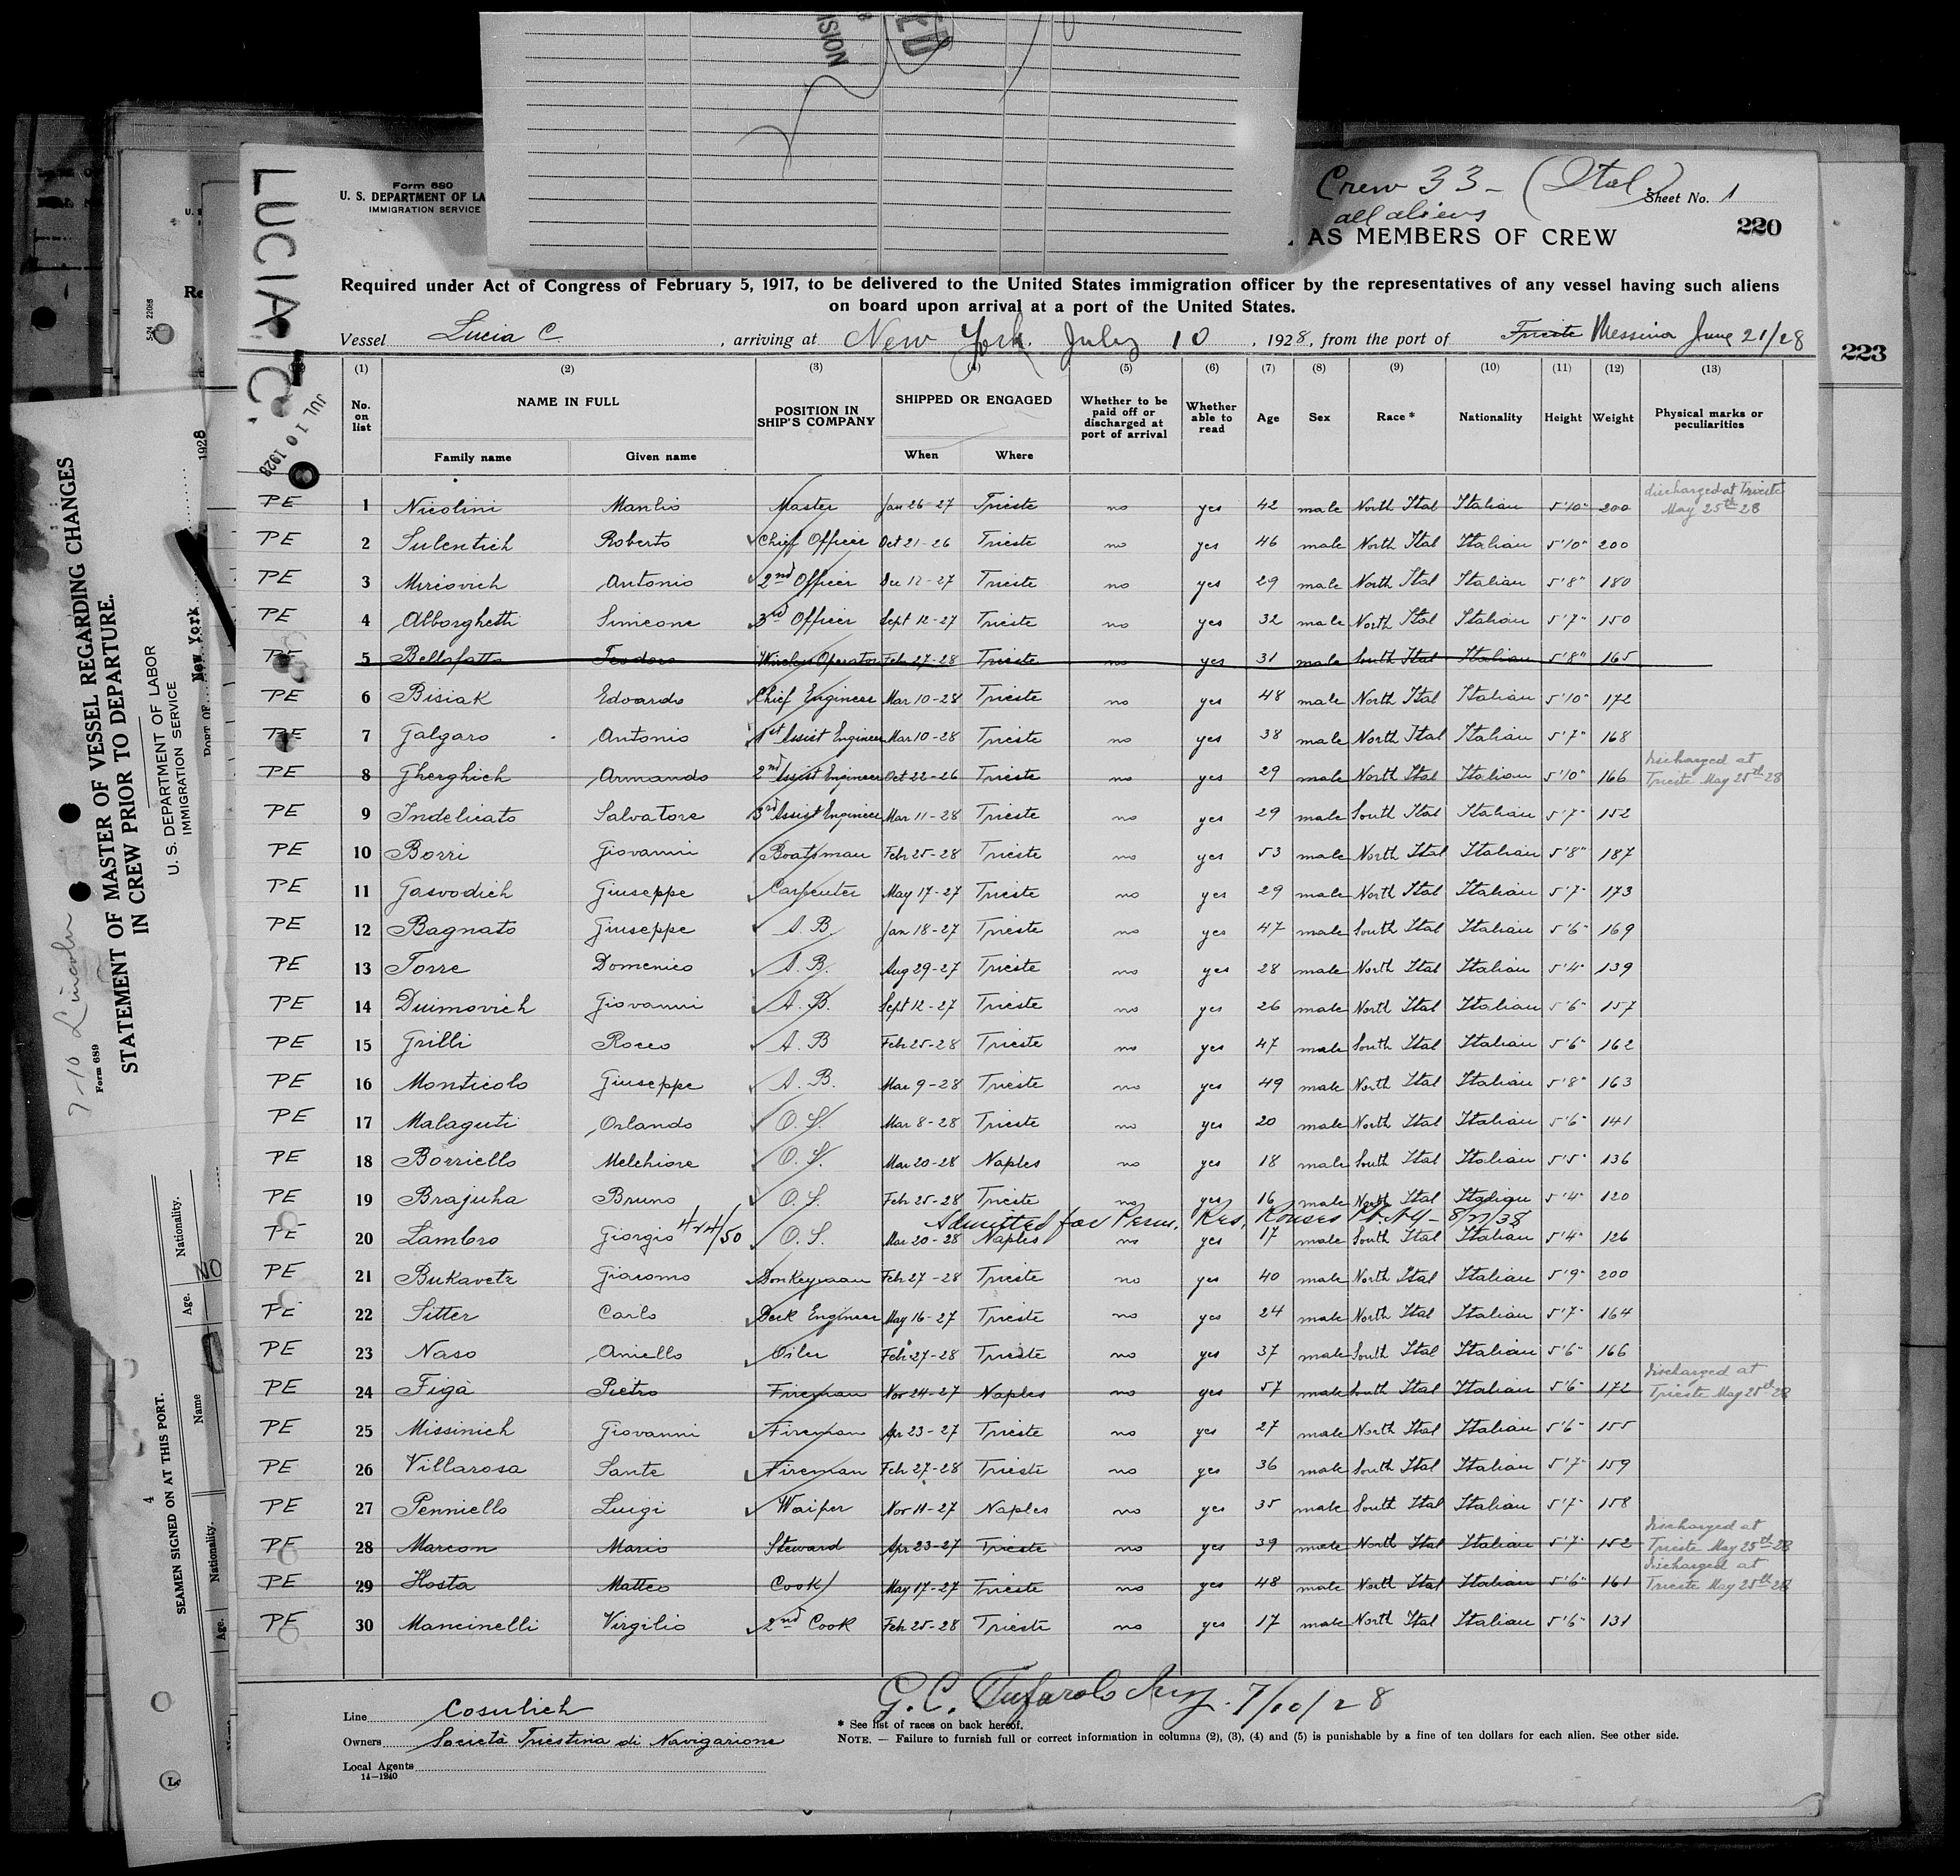 Crew 33 - (Ital.)
all aliens
Form 680
U. S. DEPARTMENT OF LA
IMMIGRATION SERVICE
Sheet No. 1
220
AS MEMBERS OF CREW
Required under Act of Congress of February 5, 1917, to be delivered to the United States immigration officer by the representatives of any vessel having such aliens
on board upon arrival at a port of the United States.
Vessel Lucia C. , arriving at New York. July 10 , 1928, from the port of Trieste Messina June 21/28
(1) (2) (3) (4) (5) (6) (7) (8) (9) (10) (11) (12) (13)
No. on list NAME IN FULL POSITION IN SHIP'S COMPANY SHIPPED OR ENGAGED Whether to be paid off or discharged at port of arrival Whether able to read Age Sex Race * Nationality Height Weight Physical marks or peculiarities
Family name Given name When Where
PE 1 Nicolini Manlio Master Jan 26-27 Trieste no yes 42 male North Ital Italian 5'10" 200 discharged at Trieste May 25th 28
PE 2 Sulentich Roberto Chief Officer Oct 21-26 Trieste no yes 46 male North Ital Italian 5'10" 200
PE 3 Mircovich Antonio 2nd Officer Dec 12-27 Trieste no yes 29 male North Ital Italian 5'8" 180
PE 4 Alborghetti Simeone 3rd Officer Sept 12-27 Trieste no yes 32 male North Ital Italian 5'7" 150
PE 5 Bellofatto Teodoro Wireless Operator Feb 27-28 Trieste no yes 31 male South Ital Italian 5'8" 165
PE 6 Bisiak Edoardo Chief Engineer Mar 10-28 Trieste no yes 48 male North Ital Italian 5'10" 172
PE 7 Galgaro Antonio 1st Assist Engineer Mar 10-28 Trieste no yes 38 male North Ital Italian 5'7" 168
PE 8 Gherghich Armando 2nd Assist Engineer Oct 22-26 Trieste no yes 29 male North Ital Italian 5'10" 166 discharged at Trieste May 25th 28
PE 9 Indelicato Salvatore 3rd Assist Engineer Mar 11-28 Trieste no yes 29 male South Ital Italian 5'7" 152
PE 10 Borri Giovanni Boatsman Feb 25-28 Trieste no yes 53 male North Ital Italian 5'8" 187
PE 11 Gasvodich Giuseppe Carpenter May 17-27 Trieste no yes 29 male North Ital Italian 5'7" 173
PE 12 Bagnato Giuseppe A. B. Jan 18-27 Trieste no yes 47 male South Ital Italian 5'6" 169
PE 13 Torre Domenico A. B. Aug 29-27 Trieste no yes 28 male North Ital Italian 5'4" 139
PE 14 Duimovich Giovanni A. B. Sept 12-27 Trieste no yes 26 male North Ital Italian 5'6" 157
PE 15 Grilli Rocco A. B Feb 25-28 Trieste no yes 47 male South Ital Italian 5'6" 162
PE 16 Monticolo Giuseppe A. B. Mar 9-28 Trieste no yes 49 male North Ital Italian 5'8" 163
PE 17 Malaguti Orlando O. S. Mar 8-28 Trieste no yes 20 male North Ital Italian 5'6" 141
PE 18 Borriello Melchiore O. S. Mar 20-28 Naples no yes 18 male South Ital Italian 5'5" 136
PE 19 Brajuha Bruno O. S. Feb 25-28 Trieste no yes 16 male North Ital Italian 5'4" 120
Admitted for Perm. Res, Rouses Pt. N.Y -
PE 20 Lambro Giorgio O. S. Mar 20-28 Naples no yes 17 male South Ital Italian 5'4" 126
PE 21 Bukavetz Giacomo Donkeyman Feb 27-28 Trieste no yes 40 male North Ital Italian 5'9" 200
PE 22 Sitter Carlo Deck Engineer May 16-27 Trieste no yes 24 male North Ital Italian 5'7" 164
PE 23 Naso Aniello Oiler Feb 27-28 Trieste no yes 37 male South Ital Italian 5'6" 166
PE 24 Figà Pietro Fireman Nov 24-27 Naples no yes 57 male South Ital Italian 5'6" 172 discharged at Trieste May 25th 28
PE 25 Missinich Giovanni Fireman Apr 23-27 Trieste no yes 27 male North Ital Italian 5'6" 155
PE 26 Villarosa Sante Fireman Feb 27-28 Trieste no yes 36 male South Ital Italian 5'7" 159
PE 27 Penniello Luigi Waiper Nov 11-27 Naples no yes 35 male South Ital Italian 5'7" 158
PE 28 Marcon Mario Steward Apr 23-27 Trieste no yes 39 male North Ital Italian 5'7" 152 discharged at Trieste May 25th 28
PE 29 Hosta Matteo Cook May 17-27 Trieste no yes 48 male North Ital Italian 5'6" 161 discharged at Trieste May 25th 28
PE 30 Mancinelli Virgilio 2nd Cook Feb 25-28 Trieste no yes 17 male North Ital Italian 5'6" 131
Line Cosulich
Owners Società Triestina di Navigazione
Local Agents
14-1240
G. C. Tufarolo Insp. 7/10/28
* See list of races on back hereof.
NOTE. — Failure to furnish full or correct information in columns (2), (3), (4) and (5) is punishable by a fine of ten dollars for each alien. See other side.
LUCIA C.
JUL 10 1928
223
7-10 Lincoln
Form 689
STATEMENT OF MASTER OF VESSEL REGARDING CHANGES
IN CREW PRIOR TO DEPARTURE.
U. S. DEPARTMENT OF LABOR
IMMIGRATION SERVICE
PORT OF New York 1928
4
SEAMEN SIGNED ON AT THIS PORT.
Name Age. Nationality.
Age. Nationality.
NO